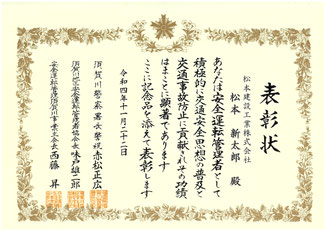 表彰状
松本建設工業株式会社
松本 新太郎 殿
あなたは安全運転管理者として
積極的に交通安全思想の普及と
交通事故防止に貢献されその功績
はまことに顕著であります
ここに記念品を添えて表彰します
令和四年十一月二十二日
須賀川警察署長警視 赤松正広
須賀川地区安全運転管理者協会長 味戸雄二郎
安全運転管理須賀川事業主会長 西藤 昇